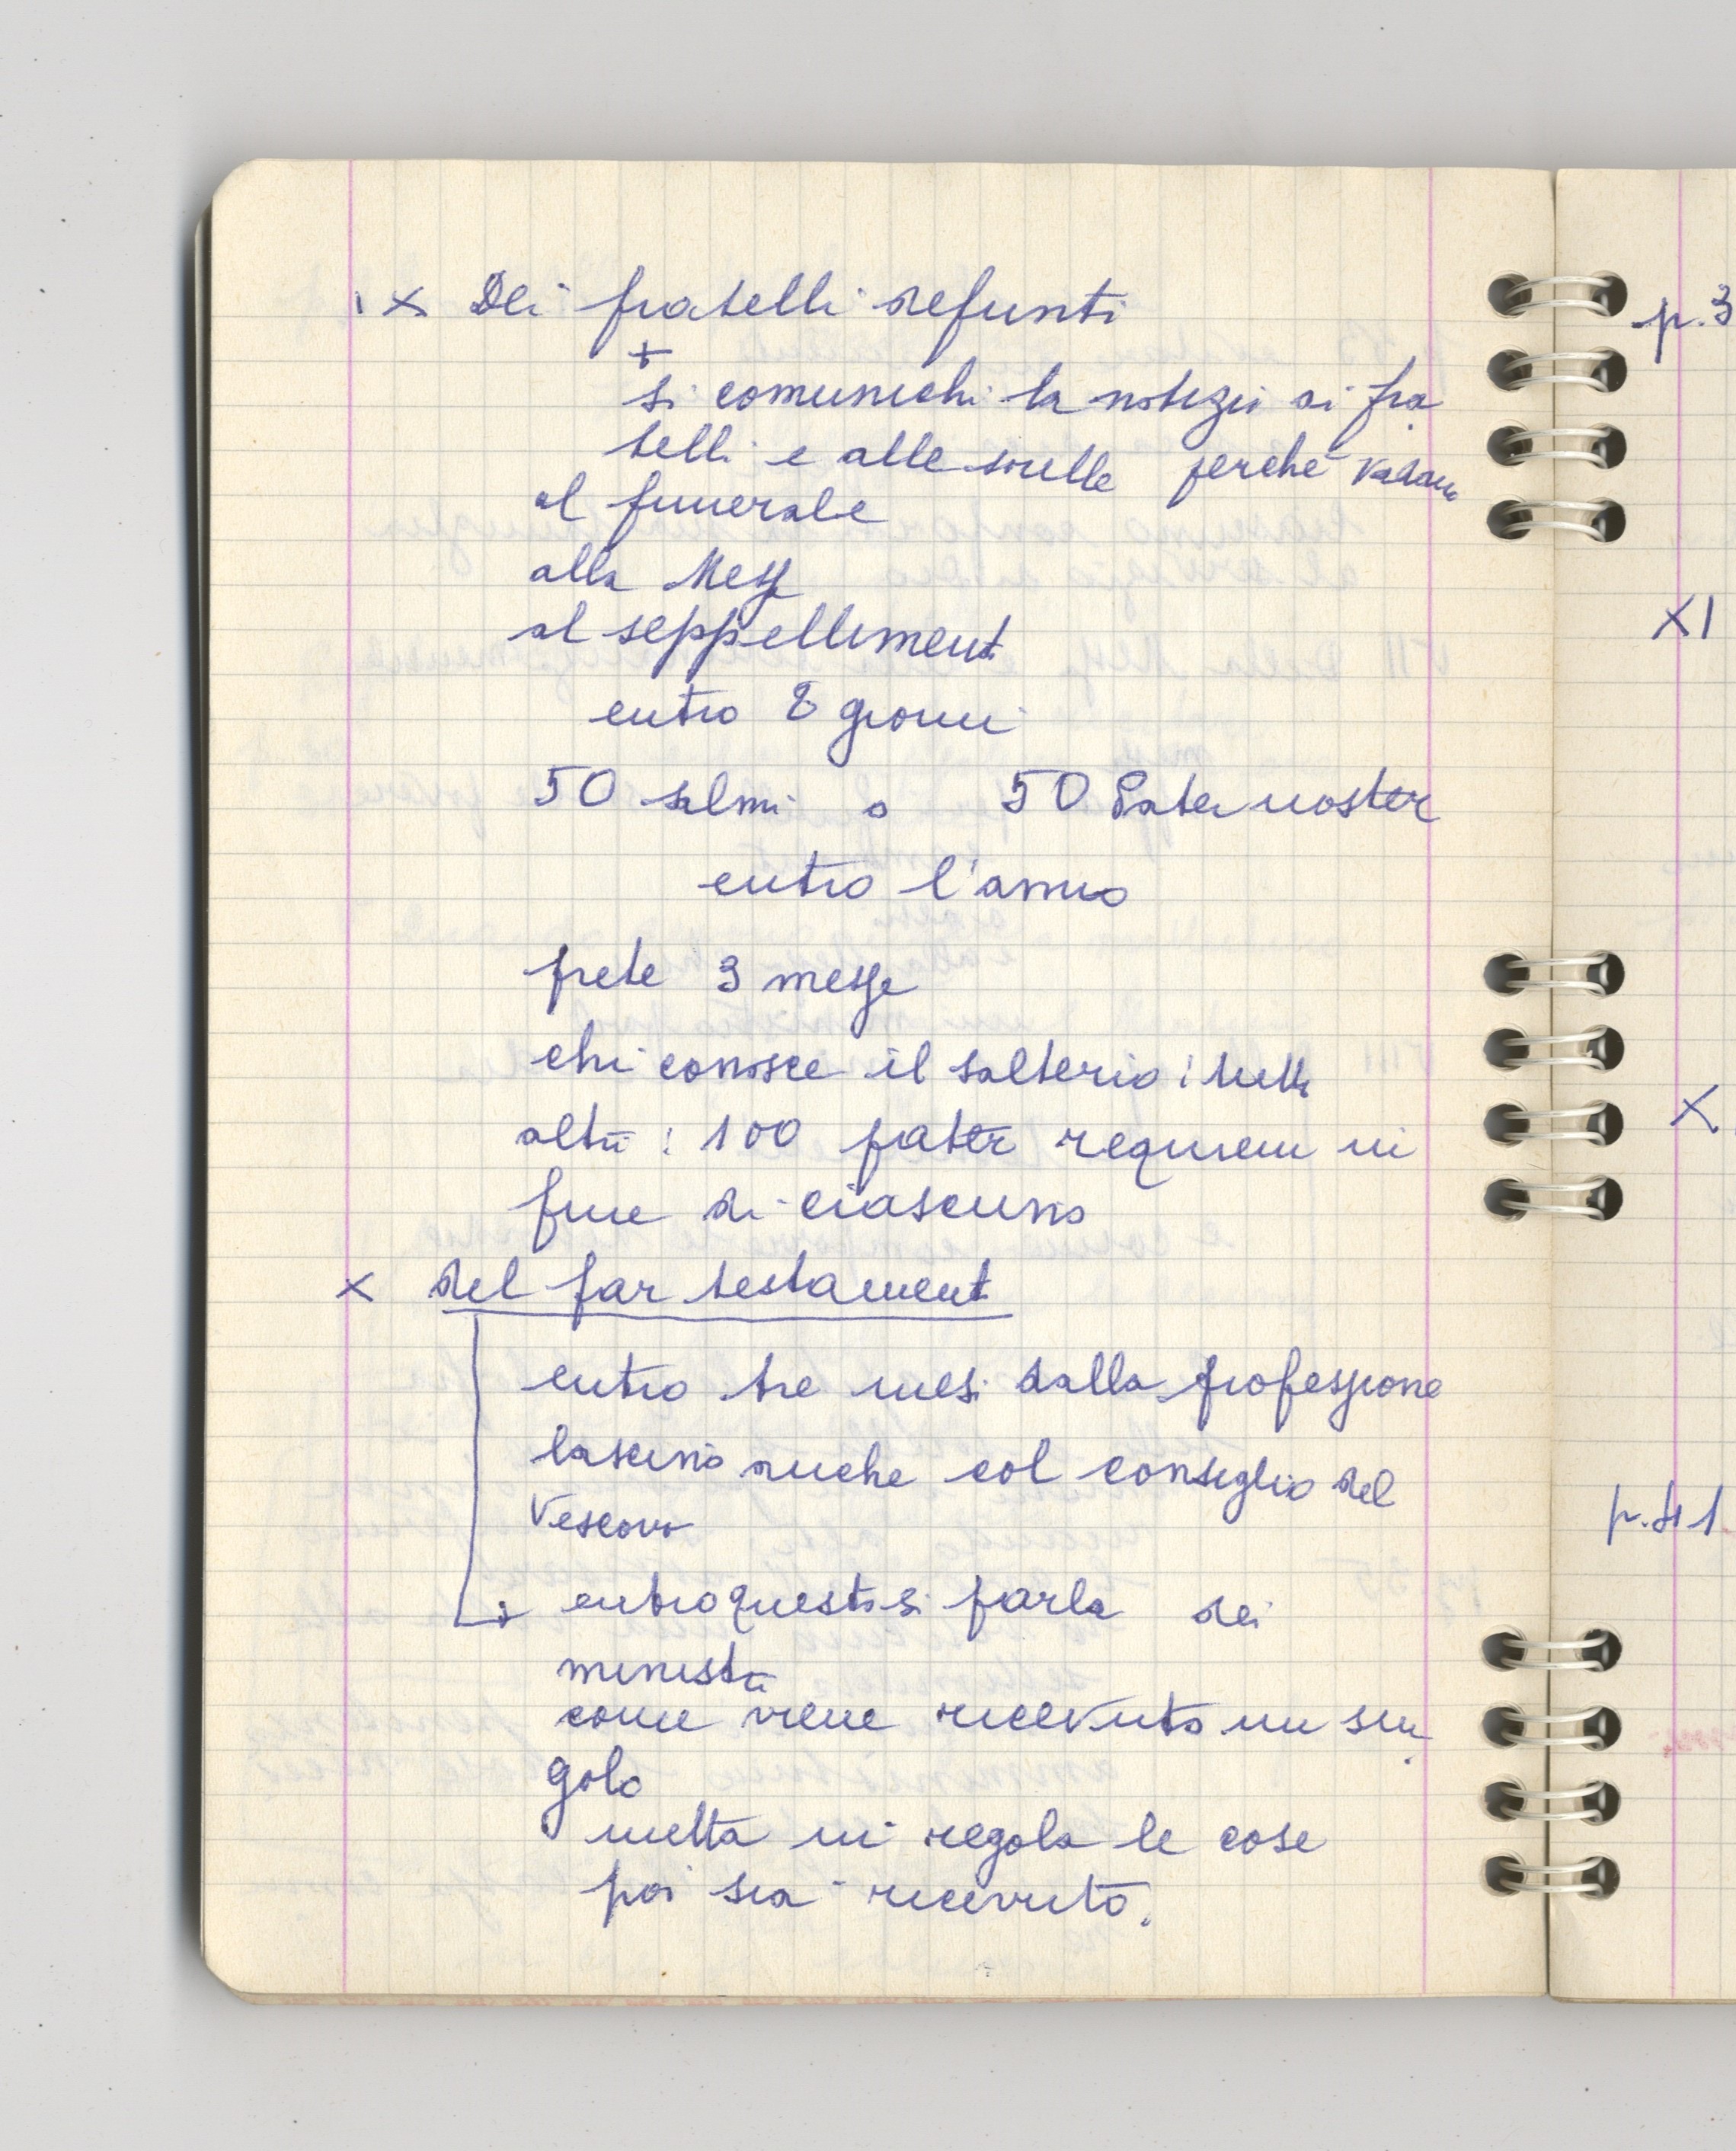 IX Dei fratelli defunti
+
si comunichi la notizia ai fra
telli e alle sorelle perché vadano
al funerale
alla Messa
al seppelliment
entro 8 giorni
50 salmi o 50 Pater noster
entro l'anno
prete 3 messe
chi conosce il salterio: tutto
altri: 100 pater requiem in
fine di ciascuno
X del far testament
entro tre mesi dalla professione
lascino anche col consiglio del
Vescovo
entro questo si parla dei
ministri
come viene ricevuto un sin
golo
metta in regola le cose
poi sia ricevuto.
p. 3
XI
X
p. 41